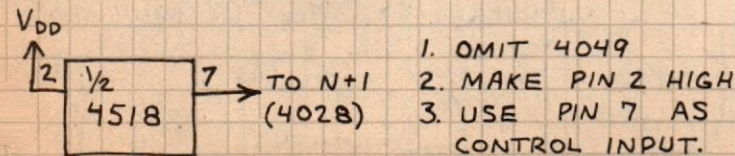 VDD
2 1/2 7 TO N+1
4518 (4028)
1. OMIT 4049
2. MAKE PIN 2 HIGH
3. USE PIN 7 AS
CONTROL INPUT.